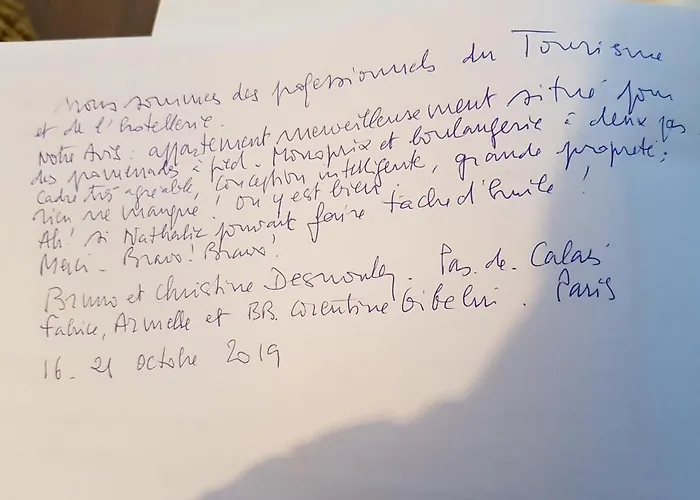 Nous sommes des professionnels du Tourisme
et de l'hotellerie.
Notre Avis : appartement merveilleusement situé pour
des promenades à pied. Monoprix et boulangerie à deux pas
Cadre très agréable, conception intelligente, grande propreté :
rien ne manque ! on y est bien.
Ah ! si Nathalie pouvait faire tache d'huile !
Merci - Bravo ! Bravo !
Bruno et Christine . Pas. de. Calais
Fabrice, Armelle et BB. Corentine Gibelin . Paris
16 - 21 octobre 2019